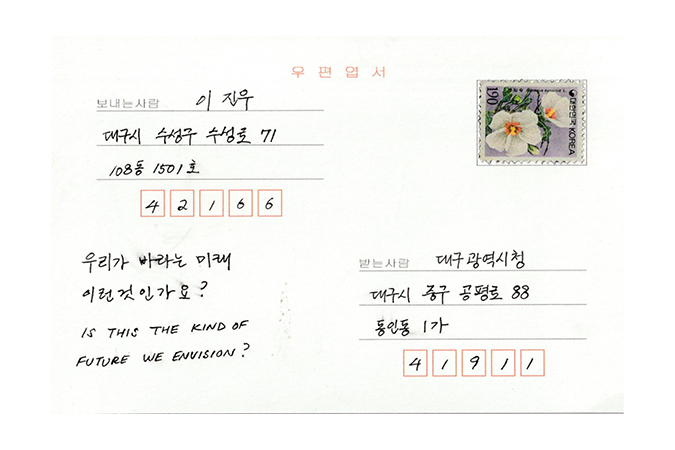 우편엽서
보내는사람 이진우
대구시 수성구 수성로 71
108동 1501호
42166
190
대한민국 KOREA
우리가 바라는 미래
이런것인가요?
IS THIS THE KIND OF
FUTURE WE ENVISION?
받는사람 대구광역시청
대구시 중구 공평로 88
동인동 1가
41911